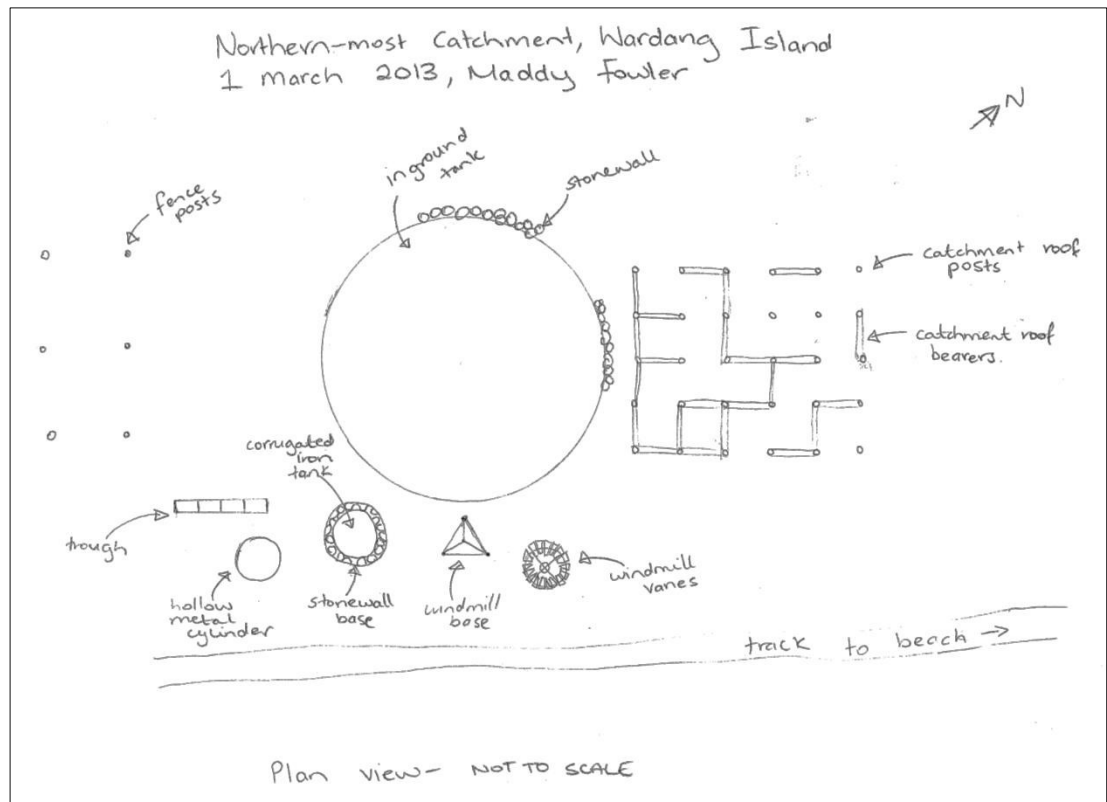 Northern-most Catchment, Wardang Island
1 march 2013, Maddy Fowler
N
inground
tank
stonewall
fence
posts
catchment roof
posts
catchment roof
bearers.
corrugated
iron
tank
trough
hollow
metal
cylinder
stonewall
base
windmill
base
windmill
vanes
track to beach →
Plan view- NOT TO SCALE